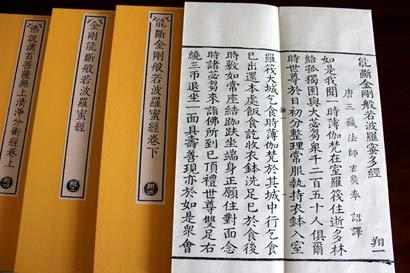 能斷金剛般若波羅蜜多經
唐三藏法師玄奘奉 詔譯
翔一
如是我聞一時薄伽梵在室羅筏住逝多林
給孤獨園與大苾芻眾千二百五十人俱爾
時世尊於日初分整理常服執持衣鉢入室
羅筏大城乞食時薄伽梵於其城中行乞食
已出還本處飯食訖收衣鉢洗足已於食後
時敷如常座結跏趺坐端身正願住對面念
時諸苾芻來詣佛所到已頂禮世尊雙足右
繞三帀退坐一面具壽善現亦於如是眾會
能斷金剛般若波羅蜜經卷下
金剛能斷般若波羅蜜經
佛說濡首菩薩無上清淨分衛經卷上